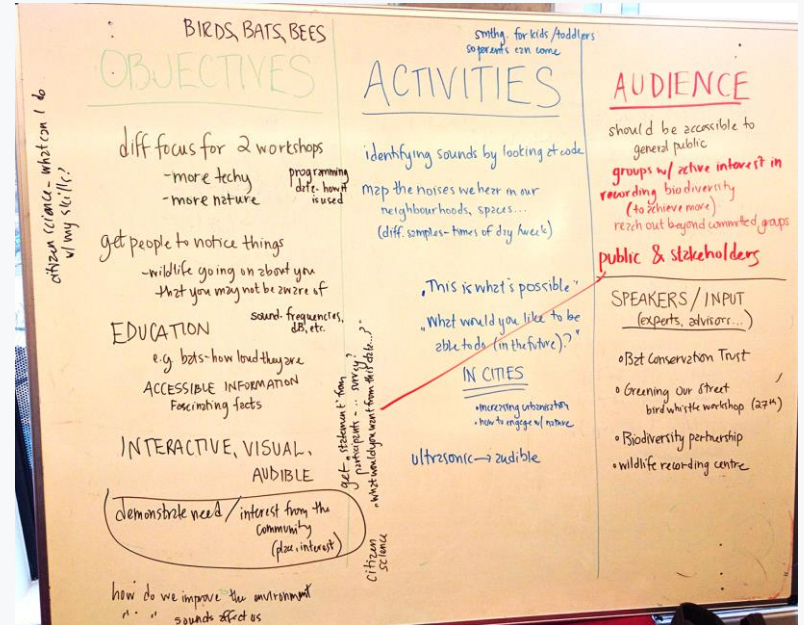 BIRDS, BATS, BEES
OBJECTIVES
citizen science - what can I do
w/ my skills?
diff focus for 2 workshops
- more techy
- more nature
programming
date - how it
is used
get people to notice things
- wildlife going on about you
that you may not be aware of
sound - frequencies,
dB, etc.
EDUCATION
e.g. bats - how loud they are
ACCESSIBLE INFORMATION
Fascinating facts
INTERACTIVE, VISUAL,
AUDIBLE
demonstrate need / interest from the
community
(place, interest)
how do we improve the environment
" " " sounds affect us
get "statement" from
participants - .. survey?
"what would you want from this date...?"
citizen
science
smthg. for kids/toddlers
so parents can come
ACTIVITIES
identifying sounds by looking at code
map the noises we hear in our
neighbourhoods, spaces...
(diff. samples - times of day/week)
"This is what's possible"
"What would you like to be
able to do (in the future)?"
IN CITIES
• increasing urbanisation
• how to engage w/ nature
ultrasonic → audible
AUDIENCE
should be accessible to
general public
groups w/ active interest in
recording biodiversity
(to achieve more)
reach out beyond committed groups
public & stakeholders
SPEAKERS / INPUT
(experts, advisors...)
• Bat Conservation Trust
• Greening Our Street
bird whistle workshop (27th)
• Biodiversity partnership
• wildlife recording centre